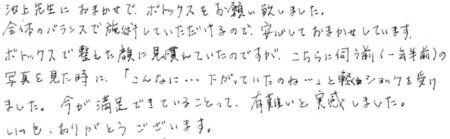 池上先生におまかせで、ボトックスをお願い致しました。
全体のバランスで施術していただけるので、安心しておまかせしています。
ボトックスで整えた顔に見慣れていたのですが、こちらに伺う前(一年半前)の
写真を見た時に、「こんなに…下がっていたのね…」と軽くショックを受け
ました。今が満足できていることって、有難いと実感しました。
いつも、ありがとうございます。